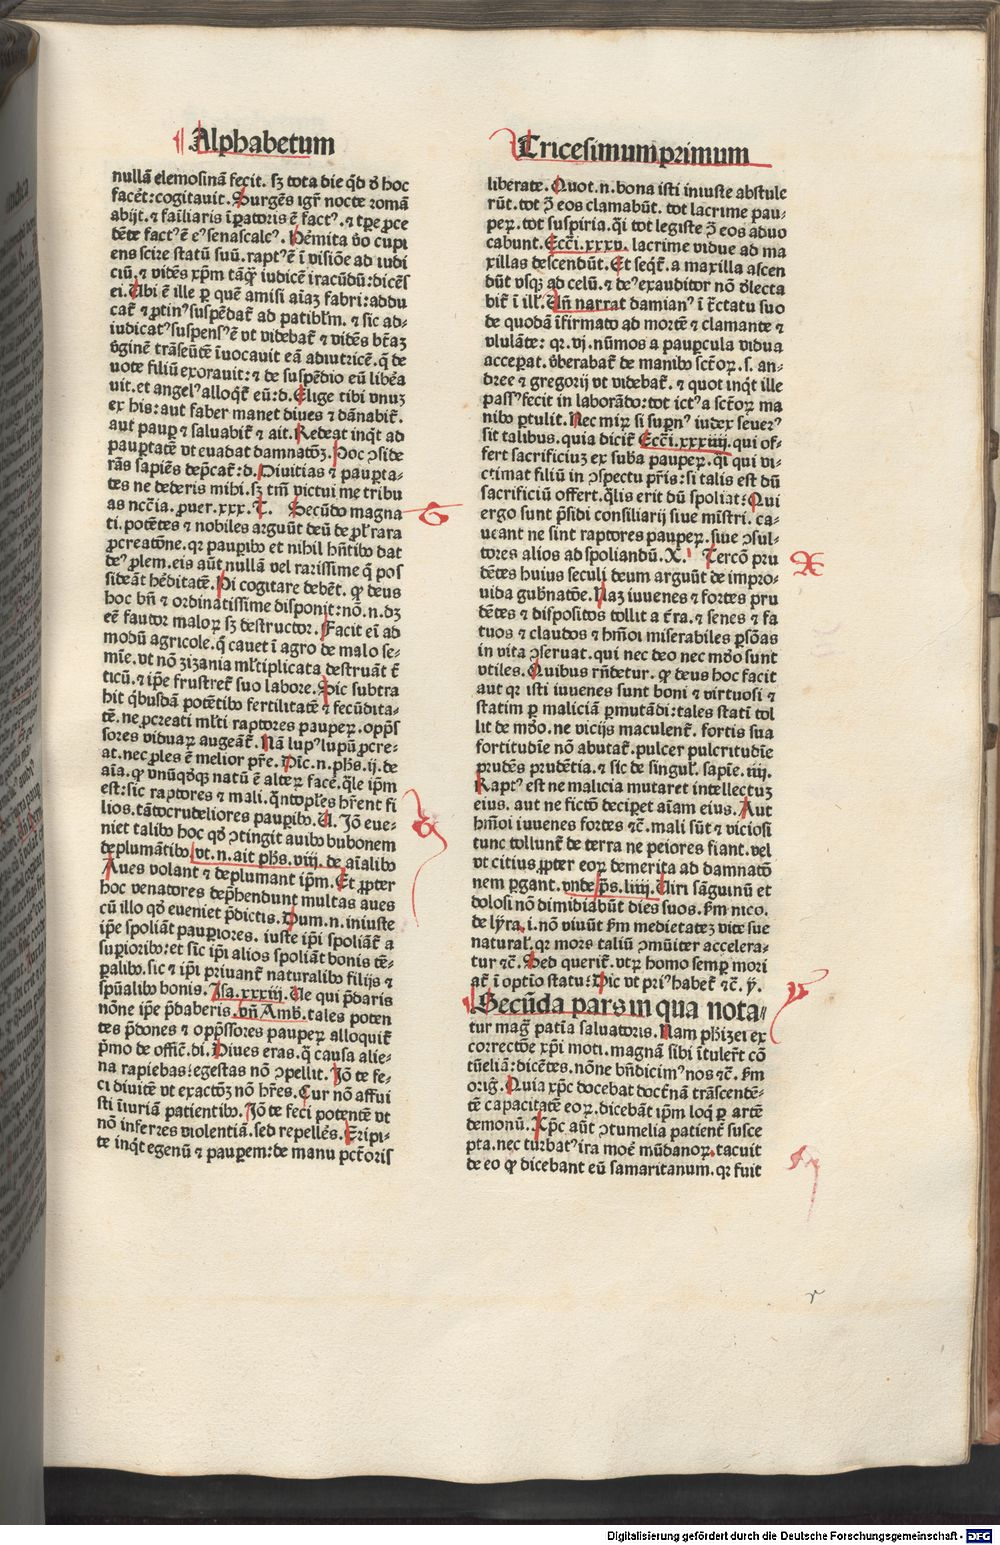 Alphabetum
nullā elemosinā fecit. sꝫ tota die qd̄ ð hoc
facēt: cogitauit. Surgēs igr̄ nocte romā
abijt. ⁊ fam̄liaris īꝑatoris ē factꝰ. ⁊ tꝑe ꝓce
dēte factꝰ ē eꝰ senascalcꝰ. Hēmita v̄o cupi
ens scire statū suū. raptꝰ ē ī visiōe ad iudi
ciū. ⁊ vidēs xp̄m tāꝙ̄ iudicē iracūdū: dicēs
ei. Ubi ē ille ꝑ quē amisi aīaꝫ fabri: addu
cat̄ ⁊ ꝓtinꝰ suspēdat̄ ad patibl̄m. ⁊ sic ad-
iudicatꝰ suspensꝰ ē vt videbat̄ ⁊ vidēs bt̄aꝫ
v̄ginē trāseūtē īuocauit eā adiutricē. q̄ de
uote filiū exorauit: ⁊ de suspēdio eū libēa
uit. et angelꝰ alloqt̄ eū: d. Elige tibi vnuꝫ
ex his: aut faber manet diues ⁊ dānabit̄.
aut pauꝑ ⁊ saluabit̄ ⁊ ait. Redeat inqt̄ ad
pauꝑtatē vt euadat damnatōꝫ. Hoc ↄside
rās sapiēs dep̄cat̄: d. Diuitias ⁊ pauꝑta-
tes ne dederis mihi. sꝫ tm̄ victui me tribu
as nc̄cia. ꝓuer. xxx. T. Secūdo magna
ti. potētes ⁊ nobiles arguūt deū de ꝓl̄ rara
ꝓcreatōne. qꝛ pauꝑibꝰ et nihil hn̄tibꝰ dat
deꝰ ꝓlem. eis aūt nullā vel rarissime q̄ pos
sideāt hēditatē. Hi cogitare debēt. ꝙ deus
hoc bn̄ ⁊ ordinatissime disponit: nō. n. dꝫ
eē fautor maloꝝ sꝫ destructor. Facit eī ad
modū agricole. q̄ cauet ī agro de malo se-
mīe. vt nō ziʒania ml̄tiplicata destruāt t̄
ticū. ⁊ ip̄e frustret̄ suo labore. Sic subtra
hit qbusdā potētibꝰ fertilitatē ⁊ fecūdita-
tē. ne ꝓcreati ml̄ti raptores pauꝑeꝝ. opp̄s
sores viduaꝝ augeāt̄. Nā lupꝰ lupū ꝓcre-
at. nec ꝓles ē melior pr̄e. Dīc. n. ph̄s. ij. de
aīa. ꝙ vnūqdqꝫ natū ē alteꝝ facē. qle ip̄m
est: sic raptores ⁊ mali. qn̄toples hr̄ent fi
lios. tātocrudeliores pauꝑibꝰ. U. Jō eue-
niet talibꝰ hoc qd̄ ↄtingit auibꝰ bubonem
deplumātibꝰ. vt. n. ait ph̄s. viij. de aīalibꝰ
Aues volant ⁊ deplumant ip̄m. Et ꝓpter
hoc venatores dep̄hendunt multas aues
cū illo qd̄ eueniet p̄dictis. Dum. n. iniuste
ip̄e spoliāt pauꝑiores. iuste ip̄i spoliāt̄ a
suꝑioribꝰ: et sīc ip̄i alios spoliāt bonis tē-
ꝑalibꝰ. sic ⁊ ip̄i priuant̄ naturalibꝰ filijs ⁊
sp̄ualibꝰ bonis. Isa. xxxiij. Ue qui p̄daris
nōne ip̄e p̄daberis. vn̄ Amb. tales poten
tes p̄dones ⁊ opp̄ssores pauꝑeꝝ alloquit̄
p̄mo de offic̄. di. Diues eras. q̄ causa alie-
na rapiebas: egestas nō ↄpellit. Jō te fe-
ci diuitē vt exactōꝫ nō hr̄es. Cur nō affui
sti īiuriam patientibꝰ. Jō te feci potentē vt
nō inferres violentiā. sed repellēs. Eripi-
te inqt̄ egenū ⁊ pauꝑem: de manu pct̄oris
Tricesimumprimum
liberate. Quot. n. bona isti iniuste abstule
rūt. tot ꝯ̄ eos clamabūt. tot lacrime pau-
peꝝ. tot suspiria. qi tot legiste ꝯ̄ eos aduo
cabunt. Ecc̄i. xxxv. lacrime vidue ad ma
xillas descendūt. Et seqt̄. a maxilla ascen
dūt vsqꝫ ad celū. ⁊ deꝰ exauditor nō ð̄lecta
bit̄ ī ill̄. Un̄ narrat damianꝰ ī t̄ctatu suo
de quodā īfirmato ad mortē ⁊ clamante ⁊
vlulāte: qꝛ. vj. nūmos a pauꝑcula vidua
acceꝑat. v̄berabat̄ de manibꝰ sct̄oꝝ. s. an-
dree ⁊ gregorij vt videbat̄. ⁊ quot inqt̄ ille
passꝰ fecit in laborādo: tot ictꝰ a sct̄oꝝ ma
nibꝰ ꝑtulit. Nec miꝝ si suꝑnꝰ iudex seuerꝰ
sit talibus. quia dicit̄ Ecc̄i. xxxiiij. qui of-
fert sacrificiuꝫ ex suba pauꝑeꝝ. qi qui vi-
ctimat filiū in ↄspectu pr̄is: si talis est dū
sacrificiū offert. qlis erit dū spoliat: Qui
ergo sunt p̄sidi consiliarij siue mīstri. ca-
ueant ne sint raptores pauꝑeꝝ. siue ↄsul-
tores alios ad spoliandū. X. Tercō pru
dētes huius seculi deum arguūt de impro-
uida gub̄natōe. Naꝫ iuuenes ⁊ fortes pru
dētes ⁊ dispositos tollit a t̄ra. ⁊ senes ⁊ fa
tuos ⁊ claudos ⁊ hmōi miserabiles ꝑsōas
in vita ↄseruat. qui nec deo nec mūdo sunt
vtiles. Quibus rn̄detur. ꝙ deus hoc facit
aut qꝛ isti iuuenes sunt boni ⁊ virtuosi ⁊
statim ꝑ maliciā ꝑmutādi: tales statī tol
lit de mūdo. ne vicijs maculent̄. fortis sua
fortitudīe nō abutat̄. pulcer pulcritudīe
prudēs prudētia. ⁊ sic de singul̄. sapīe. iiij.
Raptꝰ est ne malicia mutaret intellectuꝫ
eius. aut ne fictō deciꝑet aīam eius. Aut
hmōi iuuenes fortes ⁊c̄. mali sūt ⁊ viciosi
tunc tollunt̄ de terra ne peiores fiant. vel
vt citius ꝓpter eoꝝ demerita ad damnatō
nem ꝑgant. vnde p̄s. liiij. Uiri sāguinū et
dolosi nō dimidiabūt dies suos. ẜm nico.
de lyra. i. nō viuūt ẜm medietateꝫ vite sue
natural̄. qꝛ mors taliū ↄmūiter accelera-
tur ⁊c̄. Sed querit̄. vtꝝ homo semꝑ mori
at̄ ī optīo statu: Hic vt priꝰ habet̄ ⁊c̄. ȳ.
Secūda pars in qua nota-
tur maḡ patīa saluatoris. Nam ph̄izei ex
correctōe xp̄i moti. magnā sibi ītuler̄t cō
tūeliā: dicētes. nōne bn̄dicimꝰ nos ⁊c̄. ẜm
oriḡ. Quia xp̄c docebat doct̄nā trāscendē-
tē capacitatē eoꝝ. dicebāt ip̄m loq ꝑ artē
demonū. Xp̄c aūt ↄtumelia patient̄ susce
pta. nec turbatꝰ ira moē mūdanoꝝ. tacuit
de eo ꝙ dicebant eū samaritanum. qꝛ fuit
Digitalisierung gefördert durch die Deutsche Forschungsgemeinschaft - DFG